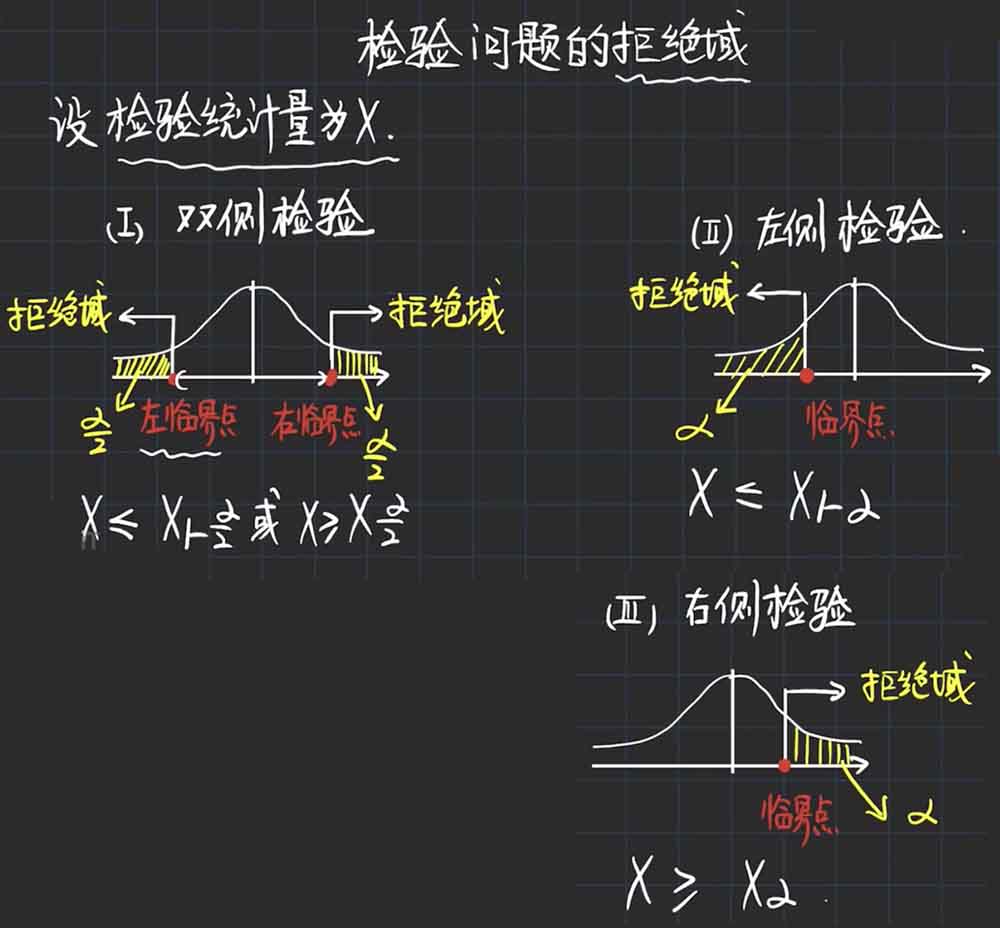 检验问题的拒绝域
设检验统计量为X.
(I) 双侧检验
拒绝域
拒绝域
α/2
左临界点
右临界点
α/2
X ≤ X1-α/2 或 X ≥ Xα/2
(II) 左侧检验.
拒绝域
α
临界点
X ≤ X1-α
(III) 右侧检验
拒绝域
临界点
α
X ≥ Xα.